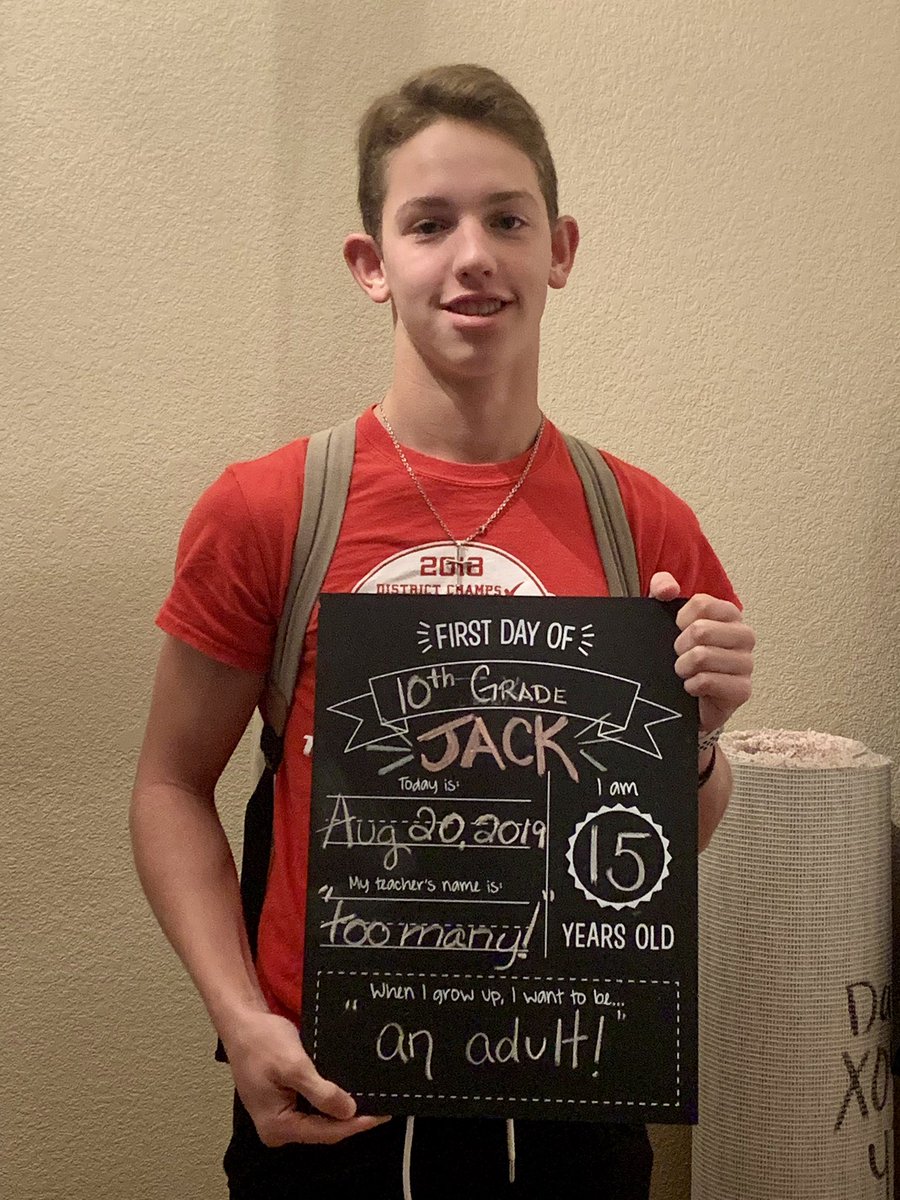 2018
DISTRICT CHAMPS
FIRST DAY OF
10th GRADE
JACK
Today is:
Aug 20, 2019
My teacher's name is:
"too many!"
I am
15
YEARS OLD
When I grow up, I want to be...
"an adult!"
XO